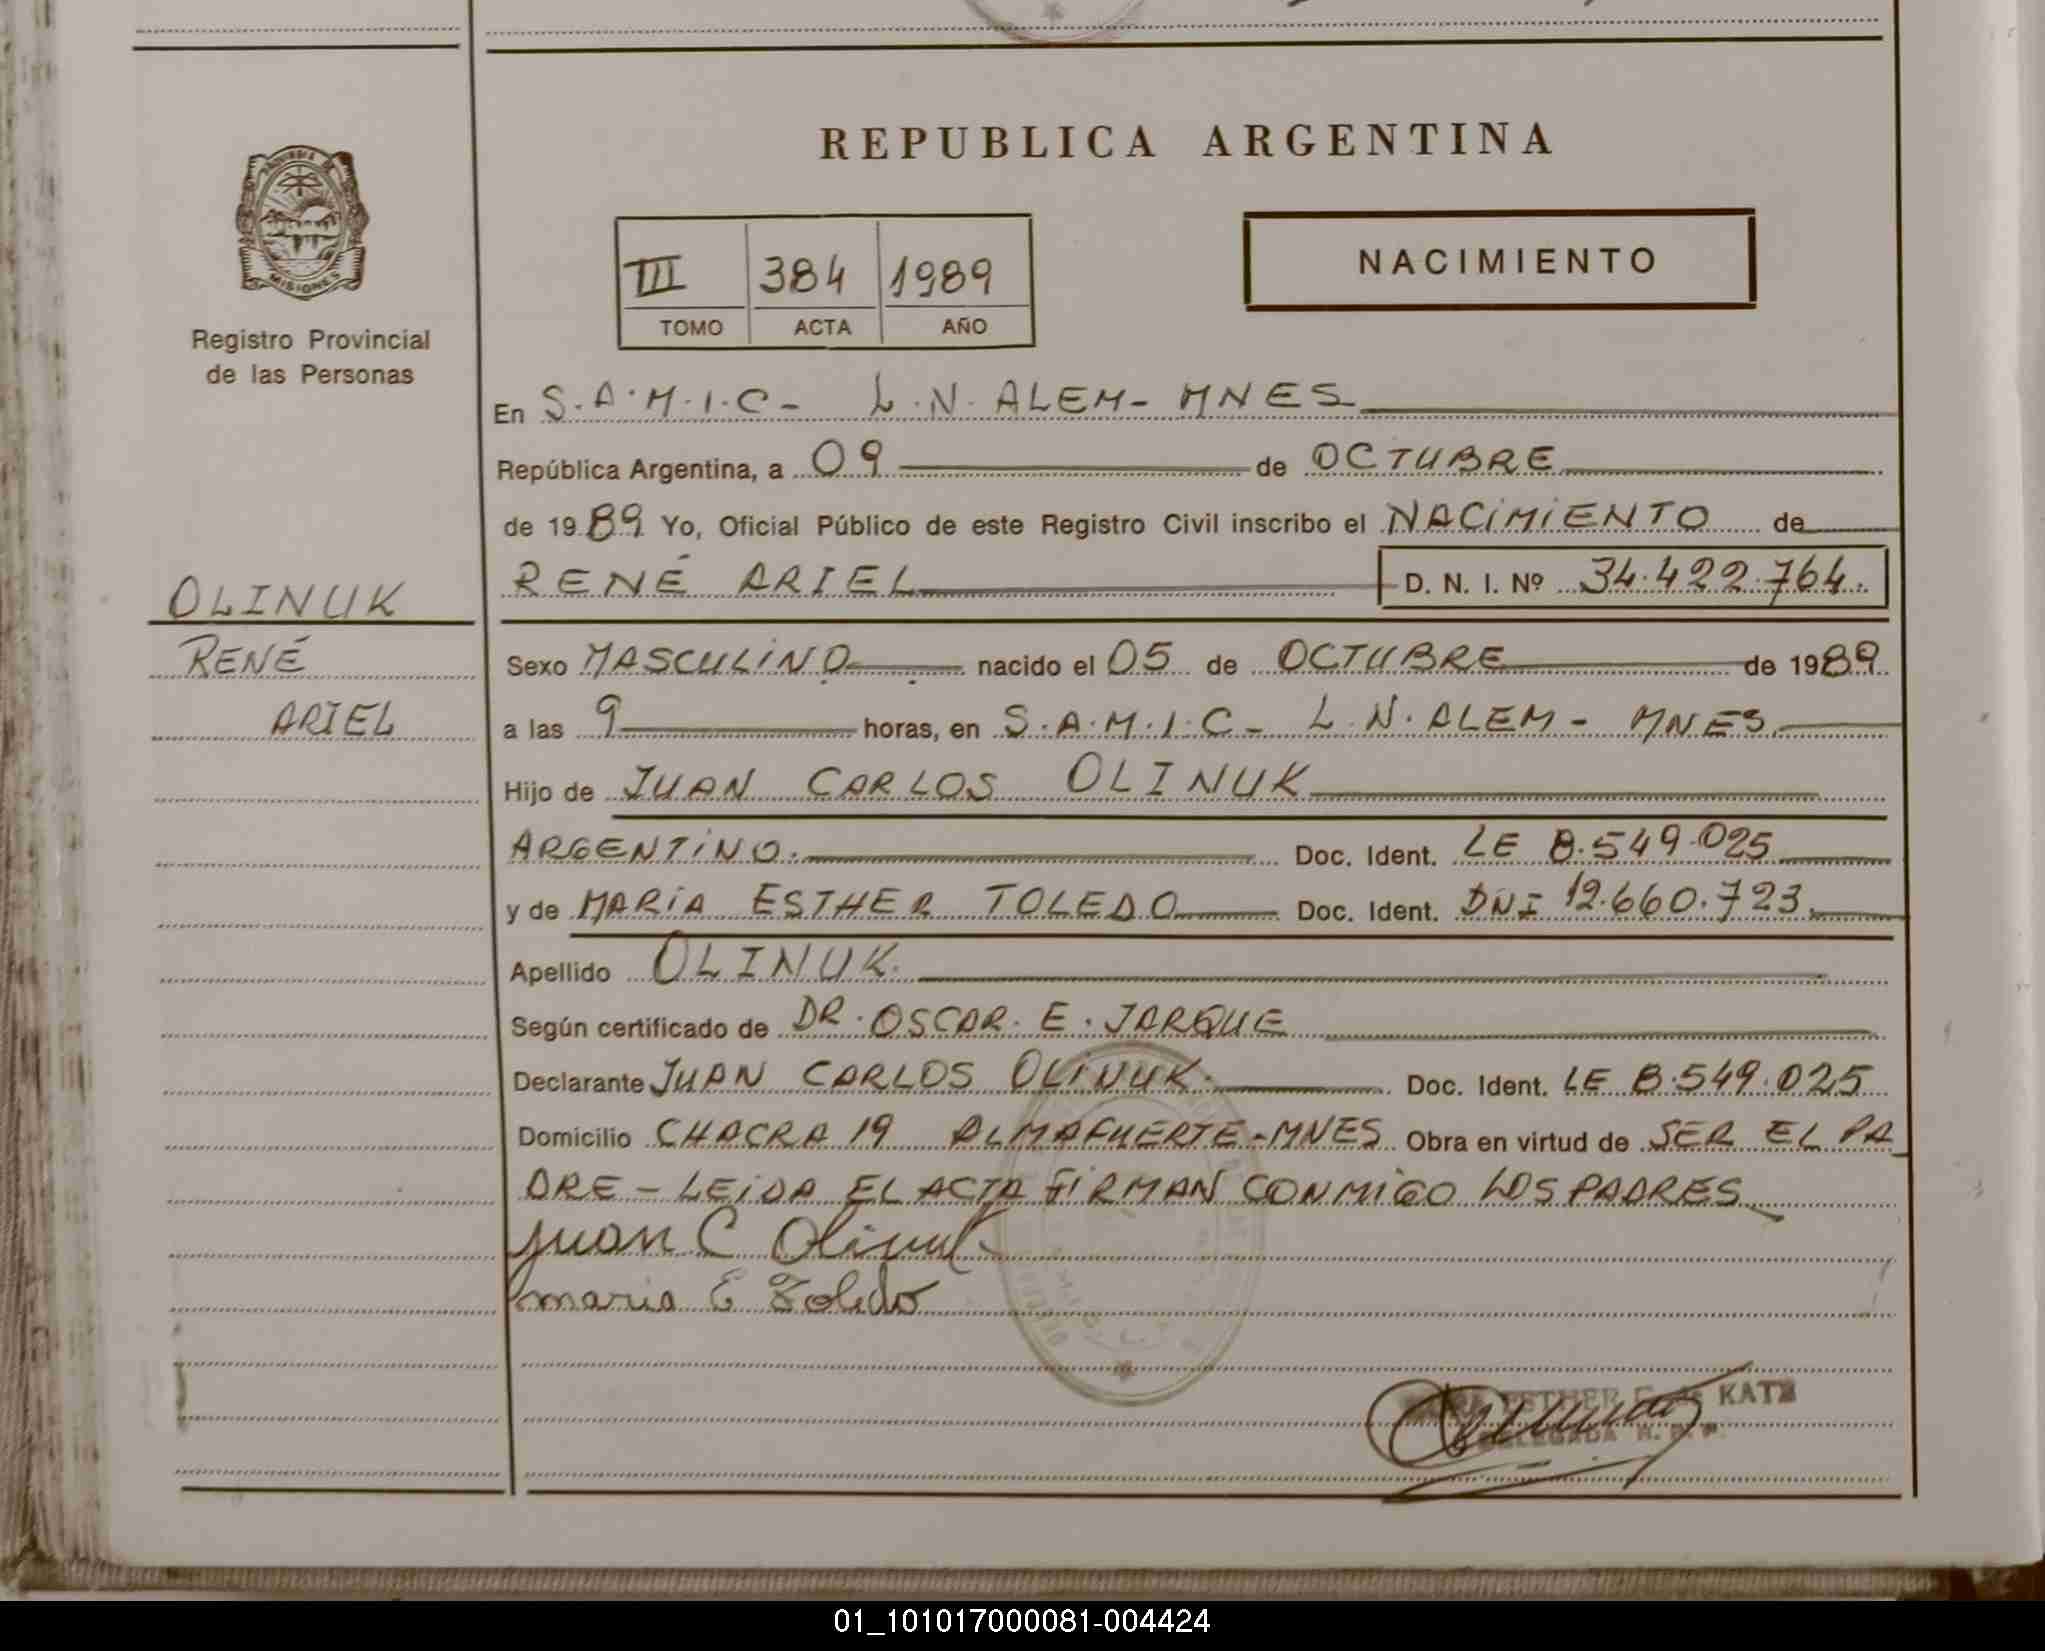 REPUBLICA ARGENTINA
PROVINCIA DE
MISIONES
Registro Provincial
de las Personas
III 384 1989
TOMO ACTA AÑO
NACIMIENTO
En S.A.M.I.C- L.N. ALEM- MNES
República Argentina, a 09 de OCTUBRE
de 1989 Yo, Oficial Público de este Registro Civil inscribo el NACIMIENTO de
RENÉ ARIEL D. N. I. Nº 34.422.764.
OLINUK
RENÉ
ARIEL
Sexo MASCULINO nacido el 05 de OCTUBRE de 1989
a las 9 horas, en S.A.M.I.C- L.N. ALEM- MNES
Hijo de JUAN CARLOS OLINUK
ARGENTINO. Doc. Ident. LE 8.549.025
y de MARIA ESTHER TOLEDO Doc. Ident. DNI 12.660.723
Apellido OLINUK.
Según certificado de DR. OSCAR. E. JARQUE
Declarante JUAN CARLOS OLINUK. Doc. Ident. LE 8.549.025
Domicilio CHACRA 19 ALMAFUERTE-MNES Obra en virtud de SER EL PA
DRE - LEIDA EL ACTA FIRMAN CONMIGO LOS PADRES
Juan C Olinuk
maria E Toledo
ESTHER KATZ
DELEGADA R. P. P.
01_101017000081-004424